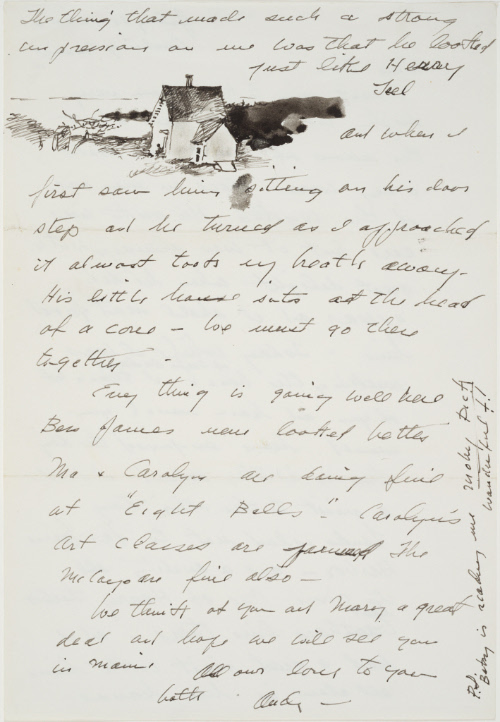 The thing that made such a strong
impression on me was that he looked
just like Henry
Teel
and when I
first saw him sitting on his door
step and he turned as I approached
it almost took my breath away.
His little house sits at the head
of a cove – We must go there
together –
Every thing is going well here
Bess James never looked better
Ma & Carolyn are being fine
at "Eight Bells". Carolyn's
art classes are jammed The
McCoys are fine also –
We think of you and Mary a great
deal and hope we will see you
in Maine. All our love to you
both. Andy –
P.S. Betsy is reading me Moby Dick
wonderful!